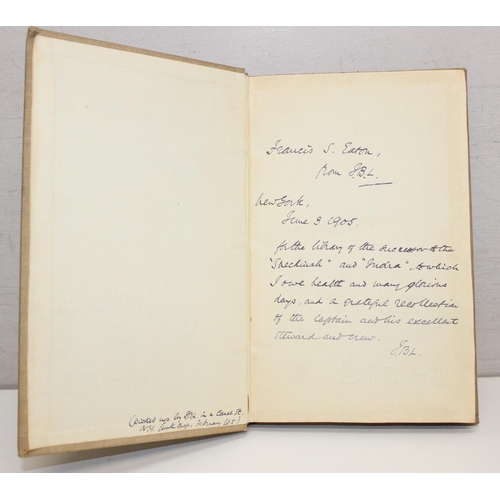 Francis S. Eaton,
from J.B.L.
New York,
June 3 1905.
for the library of the successor to the
"Shechinah" and "Indra", to which
I owe health and many glorious
days, and a grateful recollection
of the captain and his excellent
steward and crew.
J.B.L.
(picked up by J.B.L. in a Canal St,
N.Y. junk shop, February '05)